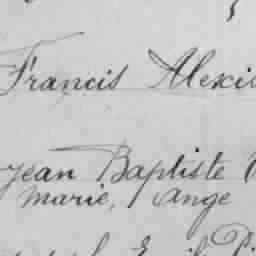 Francis Alexis
Jean Baptiste
Marie, Ange